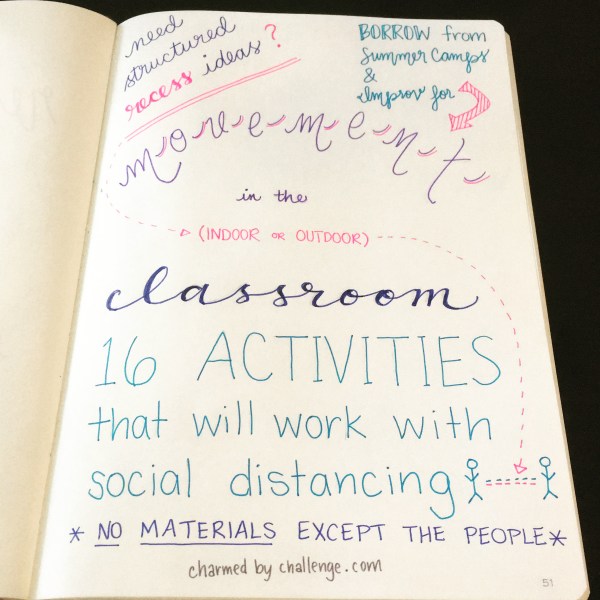 need
structured
recess ideas?
BORROW from
Summer Camps
&
Improv for
movement
in the
(INDOOR OR OUTDOOR)
classroom
16 ACTIVITIES
that will work with
social distancing
* NO MATERIALS EXCEPT THE PEOPLE*
charmed by challenge.com
51